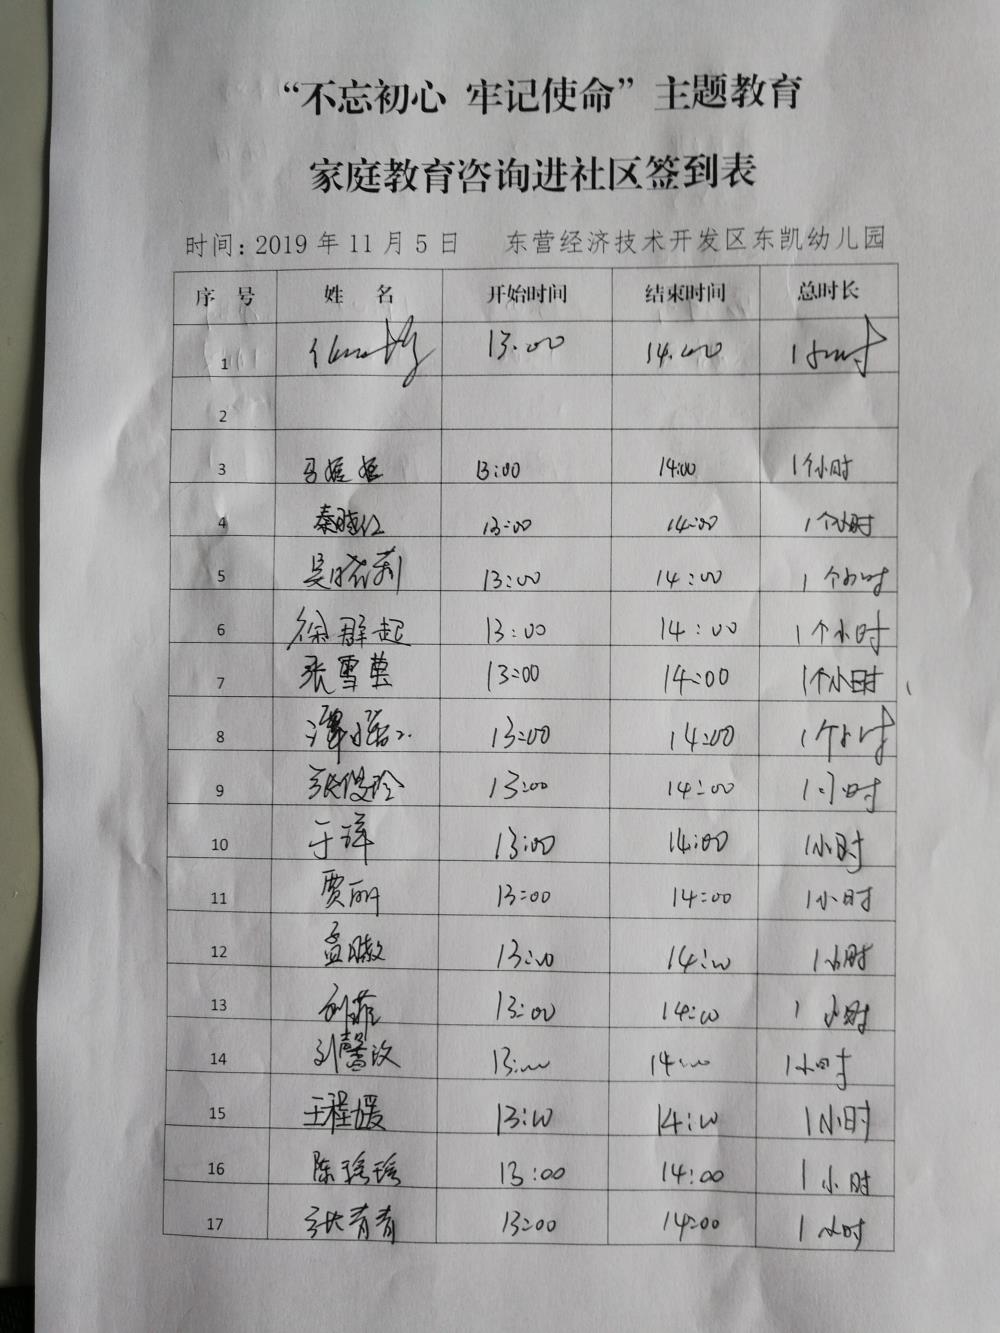 “不忘初心 牢记使命”主题教育
家庭教育咨询进社区签到表
时间：2019 年 11 月 5 日 东营经济技术开发区东凯幼儿园
序 号 姓 名 开始时间 结束时间 总时长
1 13:00 14:00 1小时
2
3 马媛媛 13:00 14:00 1个小时
4 秦晓红 13:00 14:00 1个小时
5 吴晓莉 13:00 14:00 1个小时
6 徐群起 13:00 14:00 1个小时
7 张雪莹 13:00 14:00 1个小时
8 13:00 14:00 1个小时
9 张俊玲 13:00 14:00 1小时
10 于洋 13:00 14:00 1小时
11 贾丽 13:00 14:00 1小时
12 孟 13:00 14:00 1小时
13 刘菲 13:00 14:00 1小时
14 刘馨汝 13:00 14:00 1小时
15 王程媛 13:00 14:00 1小时
16 陈瑶瑶 13:00 14:00 1小时
17 张青青 13:00 14:00 1小时